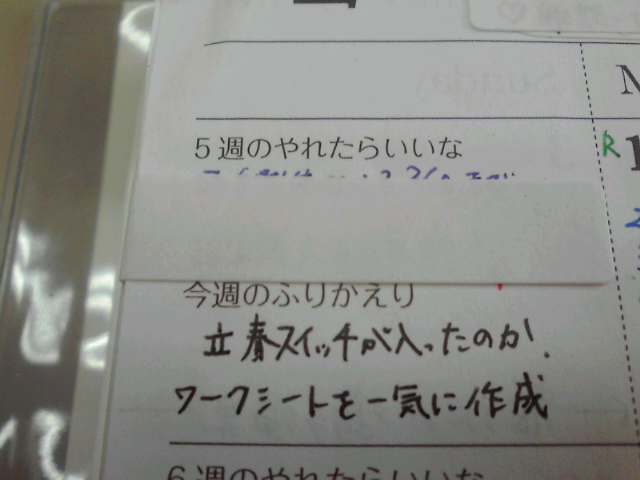 5週のやれたらいいな
R
今週のふりかえり
立春スイッチが入ったのか、
ワークシートを一気に作成
6週のやれたらいいな